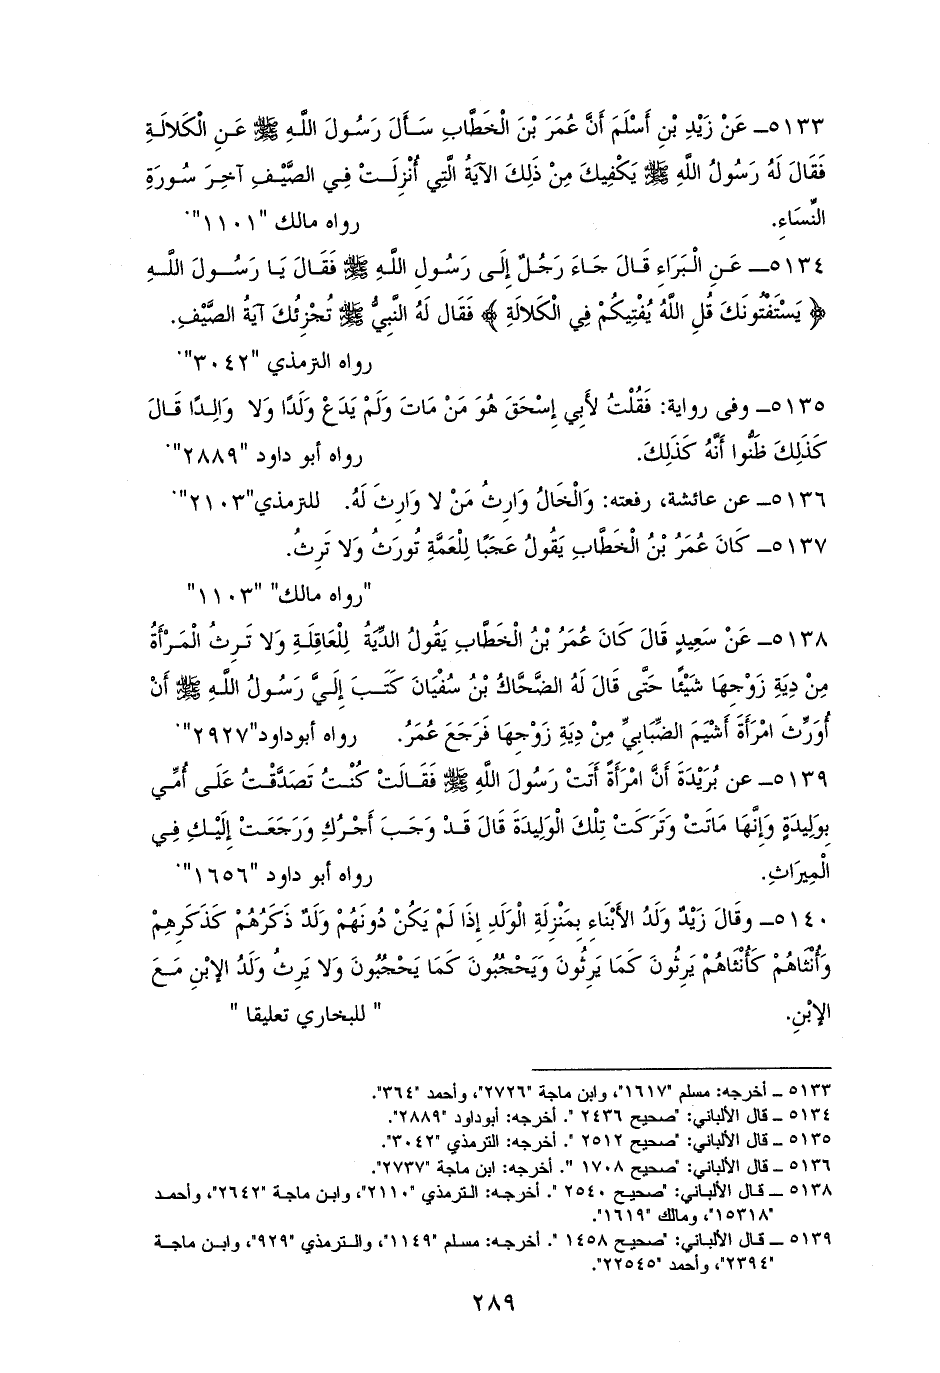 ٥١٣٣ـ عَنْ زَيْدِ بْنِ أَسْلَمَ أَنَّ عُمَرَ بْنَ الْخَطَّابِ سَأَلَ رَسُولَ اللَّهِ ﷺ عَنِ الْكَلالَةِ
فَقَالَ لَهُ رَسُولُ اللَّهِ ﷺ يَكْفِيكَ مِنْ ذَلِكَ الآيَةُ الَّتِي أُنْزِلَتْ فِي الصَّيْفِ آخِرَ سُورَةِ
النِّسَاءِ. رواه مالك "١١٠١".
٥١٣٤ـ عَنِ الْبَرَاءِ قَالَ جَاءَ رَجُلٌ إِلَى رَسُولِ اللَّهِ ﷺ فَقَالَ يَا رَسُولَ اللَّهِ
﴿ يَسْتَفْتُونَكَ قُلِ اللَّهُ يُفْتِيكُمْ فِي الْكَلالَةِ ﴾ فَقَالَ لَهُ النَّبِيُّ ﷺ تُجْزِئُكَ آيَةُ الصَّيْفِ.
رواه الترمذي "٣٠٤٢".
٥١٣٥ـ وفى رواية: فَقُلْتُ لأَبِي إِسْحَقَ هُوَ مَنْ مَاتَ وَلَمْ يَدَعْ وَلَدًا وَلا وَالِدًا قَالَ
كَذَلِكَ ظَنُّوا أَنَّهُ كَذَلِكَ. رواه أبو داود "٢٨٨٩".
٥١٣٦ـ عن عائشة، رفعته: وَالْخَالُ وَارِثُ مَنْ لا وَارِثَ لَهُ. للترمذي"٢١٠٣".
٥١٣٧ـ كَانَ عُمَرُ بْنُ الْخَطَّابِ يَقُولُ عَجَبًا لِلْعَمَّةِ تُورَثُ وَلا تَرِثُ.
"رواه مالك" "١١٠٣"
٥١٣٨ـ عَنْ سَعِيدٍ قَالَ كَانَ عُمَرُ بْنُ الْخَطَّابِ يَقُولُ الدِّيَةُ لِلْعَاقِلَةِ وَلا تَرِثُ الْمَرْأَةُ
مِنْ دِيَةِ زَوْجِهَا شَيْئًا حَتَّى قَالَ لَهُ الضَّحَّاكُ بْنُ سُفْيَانَ كَتَبَ إِلَيَّ رَسُولُ اللَّهِ ﷺ أَنْ
أُوَرِّثَ امْرَأَةَ أَشْيَمَ الضِّبَابِيِّ مِنْ دِيَةِ زَوْجِهَا فَرَجَعَ عُمَرُ. رواه أبوداود"٢٩٢٧".
٥١٣٩ـ عن بُرَيْدَةَ أَنَّ امْرَأَةً أَتَتْ رَسُولَ اللَّهِ ﷺ فَقَالَتْ كُنْتُ تَصَدَّقْتُ عَلَى أُمِّي
بِوَلِيدَةٍ وَإِنَّهَا مَاتَتْ وَتَرَكَتْ تِلْكَ الْوَلِيدَةَ قَالَ قَدْ وَجَبَ أَجْرُكِ وَرَجَعَتْ إِلَيْكِ فِي
الْمِيرَاثِ. رواه أبو داود "١٦٥٦".
٥١٤٠ـ وقَالَ زَيْدٌ وَلَدُ الأَبْنَاءِ بِمَنْزِلَةِ الْوَلَدِ إِذَا لَمْ يَكُنْ دُونَهُمْ وَلَدٌ ذَكَرُهُمْ كَذَكَرِهِمْ
وَأُنْثَاهُمْ كَأُنْثَاهُمْ يَرِثُونَ كَمَا يَرِثُونَ وَيَحْجُبُونَ كَمَا يَحْجُبُونَ وَلا يَرِثُ وَلَدُ الإبْنِ مَعَ
الإبْنِ. " للبخاري تعليقا "
٥١٣٣ ـ أخرجه: مسلم "١٦١٧"، وابن ماجة "٢٧٢٦"، وأحمد "٣٦٤".
٥١٣٤ ـ قال الألباني: "صحيح ٢٤٣٦ ". أخرجه: أبوداود "٢٨٨٩".
٥١٣٥ ـ قال الألباني: "صحيح ٢٥١٢ ". أخرجه: الترمذي "٣٠٤٢".
٥١٣٦ ـ قال الألباني: "صحيح ١٧٠٨ ". أخرجه: ابن ماجة "٢٧٣٧".
٥١٣٨ ـ قال الألباني: "صحيح ٢٥٤٠ ". أخرجه: الترمذي "٢١١٠"، وابن ماجة "٢٦٤٢"، وأحمد
"١٥٣١٨"، ومالك "١٦١٩".
٥١٣٩ ـ قال الألباني: "صحيح ١٤٥٨ ". أخرجه: مسلم "١١٤٩"، والترمذي "٩٢٩"، وابن ماجة
"٢٣٩٤"، وأحمد "٢٢٥٤٥".
٢٨٩